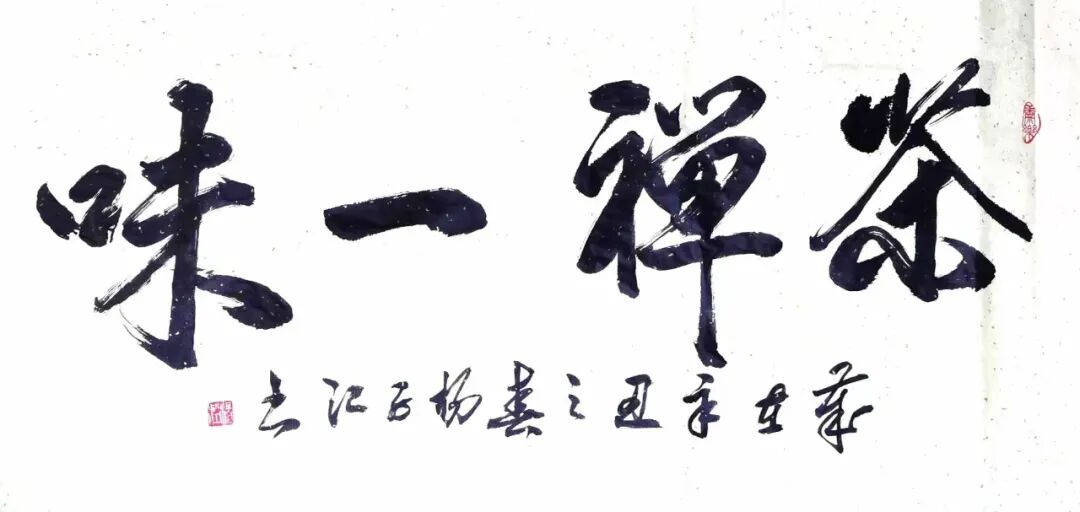 茶禅一味
歲在辛丑之春杨正江书